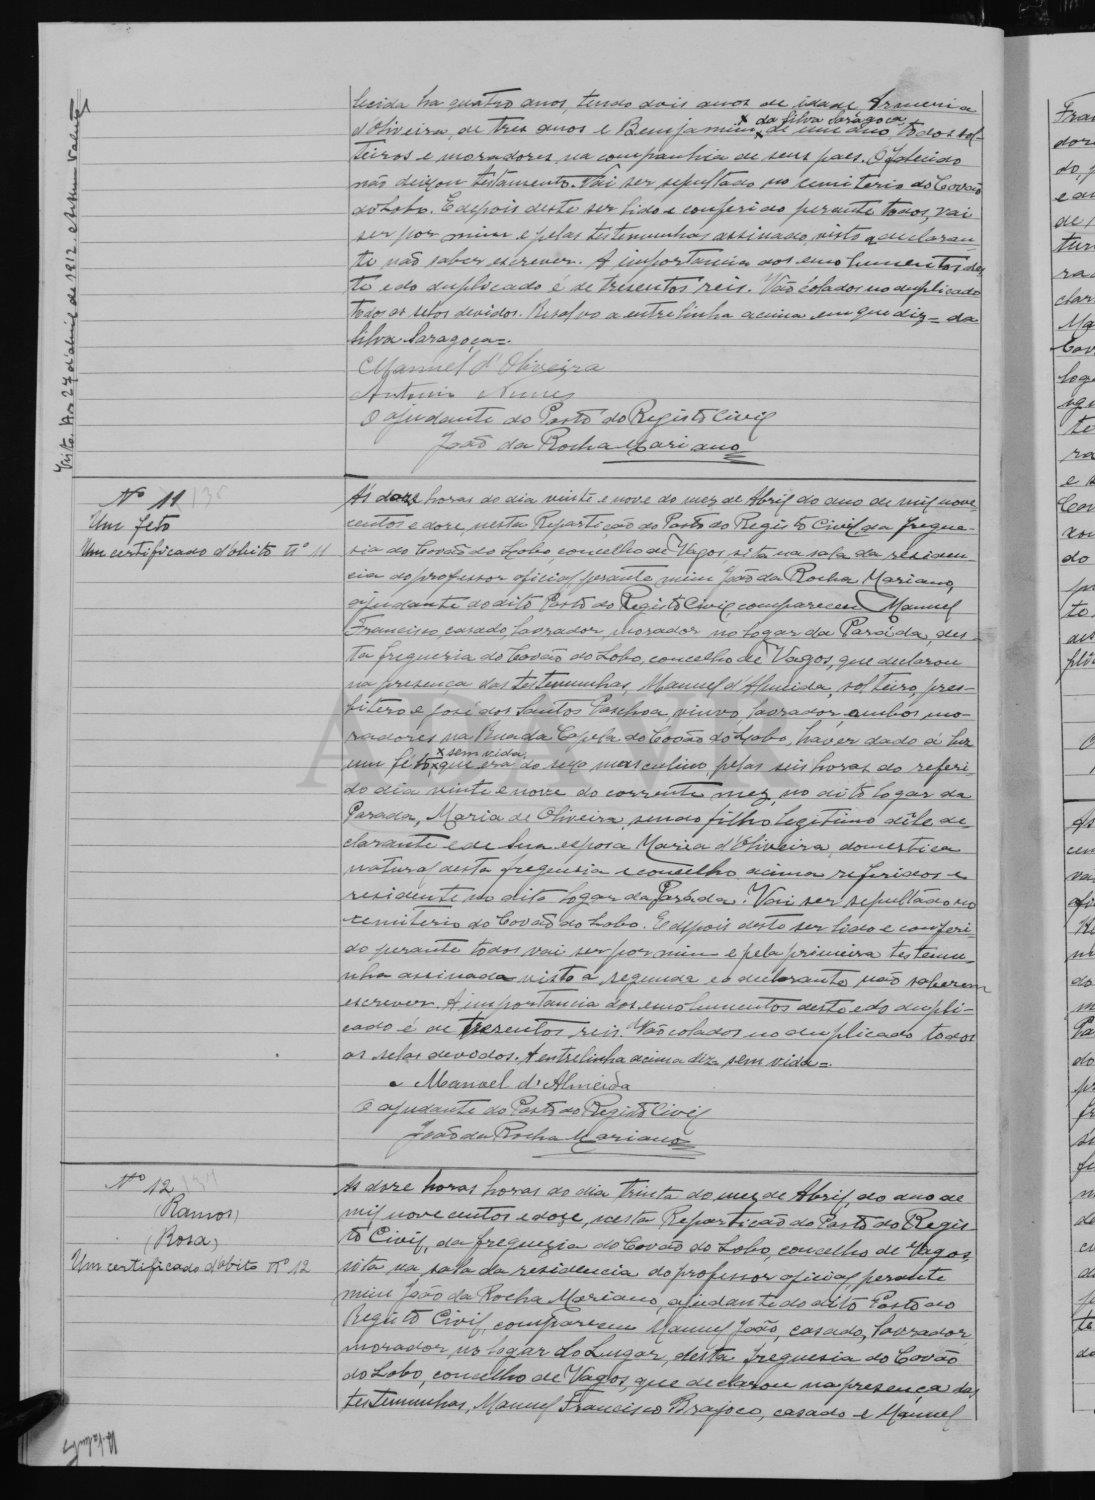 lecida ha quatro anos, tendo dois anos de idade, Armenia
d'Oliveira, de tres anos e Benjamim, x da Silva Saragoça x de um ano, todos sol-
teiros e moradores na companhia de seus paes. O falecido
não deixou testamento. Vai ser sepultado no cemiterio do Covão
do Lobo. E depois deste ser lido e conferido perante todos, vai
ser por mim e pelas testemunhas assinado, visto a declaran-
te não saber escrever. A importancia dos emolumentos des-
te e do duplicado é de tresentos reis. Vão colados no duplicado
todos os selos devidos. Resalvo a entrelinha acima em que diz = da
Silva Saragoça =.
Manuel d'Oliveira
Antonio Nunes
O ajudante do Posto do Registo Civil
João da Rocha Mariano
Visto. Aos 27 d'abril de 1912
Nº 11
Um feto
Um certificado d'obito nº 11
Ás doze horas do dia vinte e nove do mez de Abril do ano de mil nove-
centos e doze, nesta Repartição do Posto do Registo Civil da fregue-
sia do Covão do Lobo, concelho de Vagos, sita na sala da residen-
cia do professor oficial, perante mim João da Rocha Mariano,
ajudante do dito Posto do Registo Civil, compareceu Manuel
Francisco, casado, lavrador, morador no logar da Parada, des-
ta freguesia do Covão do Lobo, concelho de Vagos, que declarou
na presença das testemunhas, Manuel d'Almeida, solteiro, pres-
bitero e José dos Santos Paschoa, viuvo, lavrador, ambos mo-
radores na Rua da Capela do Covão do Lobo, haver dado á luz
um féto, x sem vida x que era do sexo masculino, pelas seis horas do referi-
do dia vinte e nove do corrente mez, no dito logar da
Parada, Maria de Oliveira, sendo filho legitimo dele de-
clarante e de sua esposa Maria d'Oliveira, domestica
natural desta freguesia e concelho acima referidos e
residente no dito logar da Parada. Vai ser sepultado no
cemiterio do Covão do Lobo. E depois deste ser lido e conferi-
do perante todos vai ser por mim e pela primeira testemu-
nha assinada visto a segunda e o declarante não saberem
escrever. A importancia dos emolumentos deste e do dupli-
cado é de tresentos reis. Vão colados no duplicado todos
os selos devodos. A entrelinha acima diz = sem vida =.
Manoel d'Almeida
O ajudante do Posto do Registo Civil
João da Rocha Mariano
Nº 12
(Ramos)
(Rosa)
Um certificado d'obito nº 12
Ás doze horas horas do dia trinta do mez de Abril, do ano de
mil nove centos e doze, nesta Repartição do Posto do Regis-
to Civil, da freguezia do Covão do Lobo, concelho de Vagos,
sita na sala da residencia do professor oficial, perante
mim João da Rocha Mariano, ajudante do dito Posto do
Registo Civil, compareceu Manuel João, casado, lavrador,
morador no logar do Lugar, desta freguesia do Covão
do Lobo, concelho de Vagos, que declarou na presença das
testemunhas, Manuel Francisco Brajoco, casado e Manuel